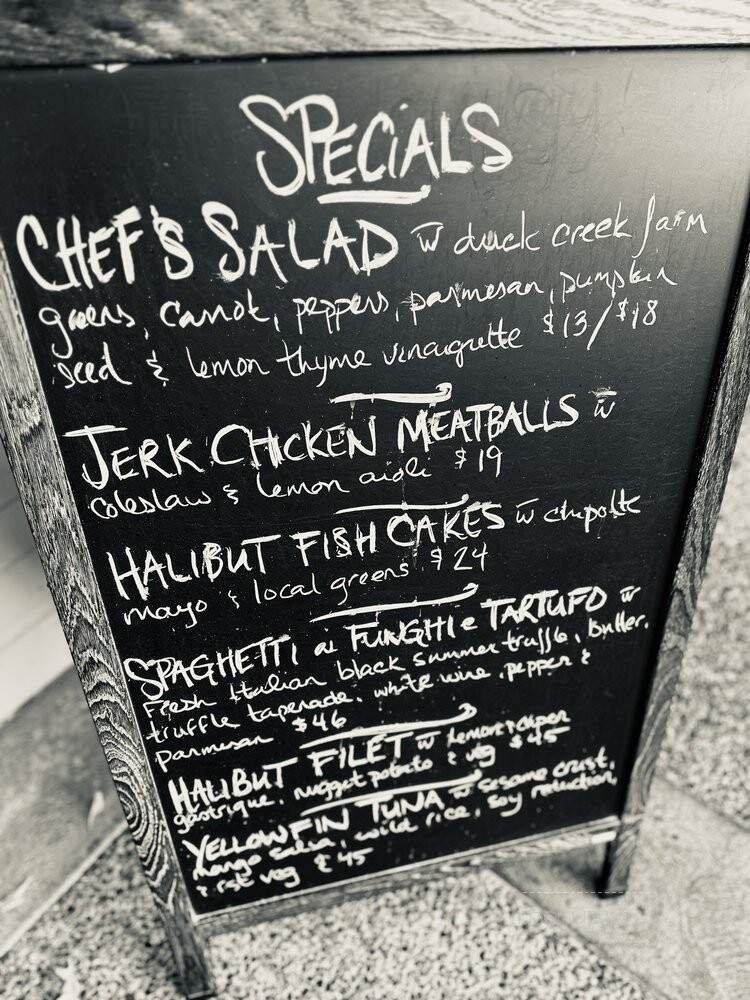 SPECIALS
CHEF'S SALAD w̄ duck creek farm
greens, carrot, peppers, parmesan, pumpkin
seed & lemon thyme vinaigrette $13/$18
JERK CHICKEN MEATBALLS w̄
coleslaw & lemon aioli $19
HALIBUT FISH CAKES w̄ chipotle
mayo & local greens $24
SPAGHETTI ai FUNGHI e TARTUFO w̄
Fresh Italian black summer truffle, butter,
truffle tapenade, white wine, pepper &
parmesan $46
HALIBUT FILET w̄ lemon pepper
gastrique, nugget potato & veg $45
YELLOWFIN TUNA w̄ sesame crust,
mango salsa, wild rice, soy reduction,
& veg $45